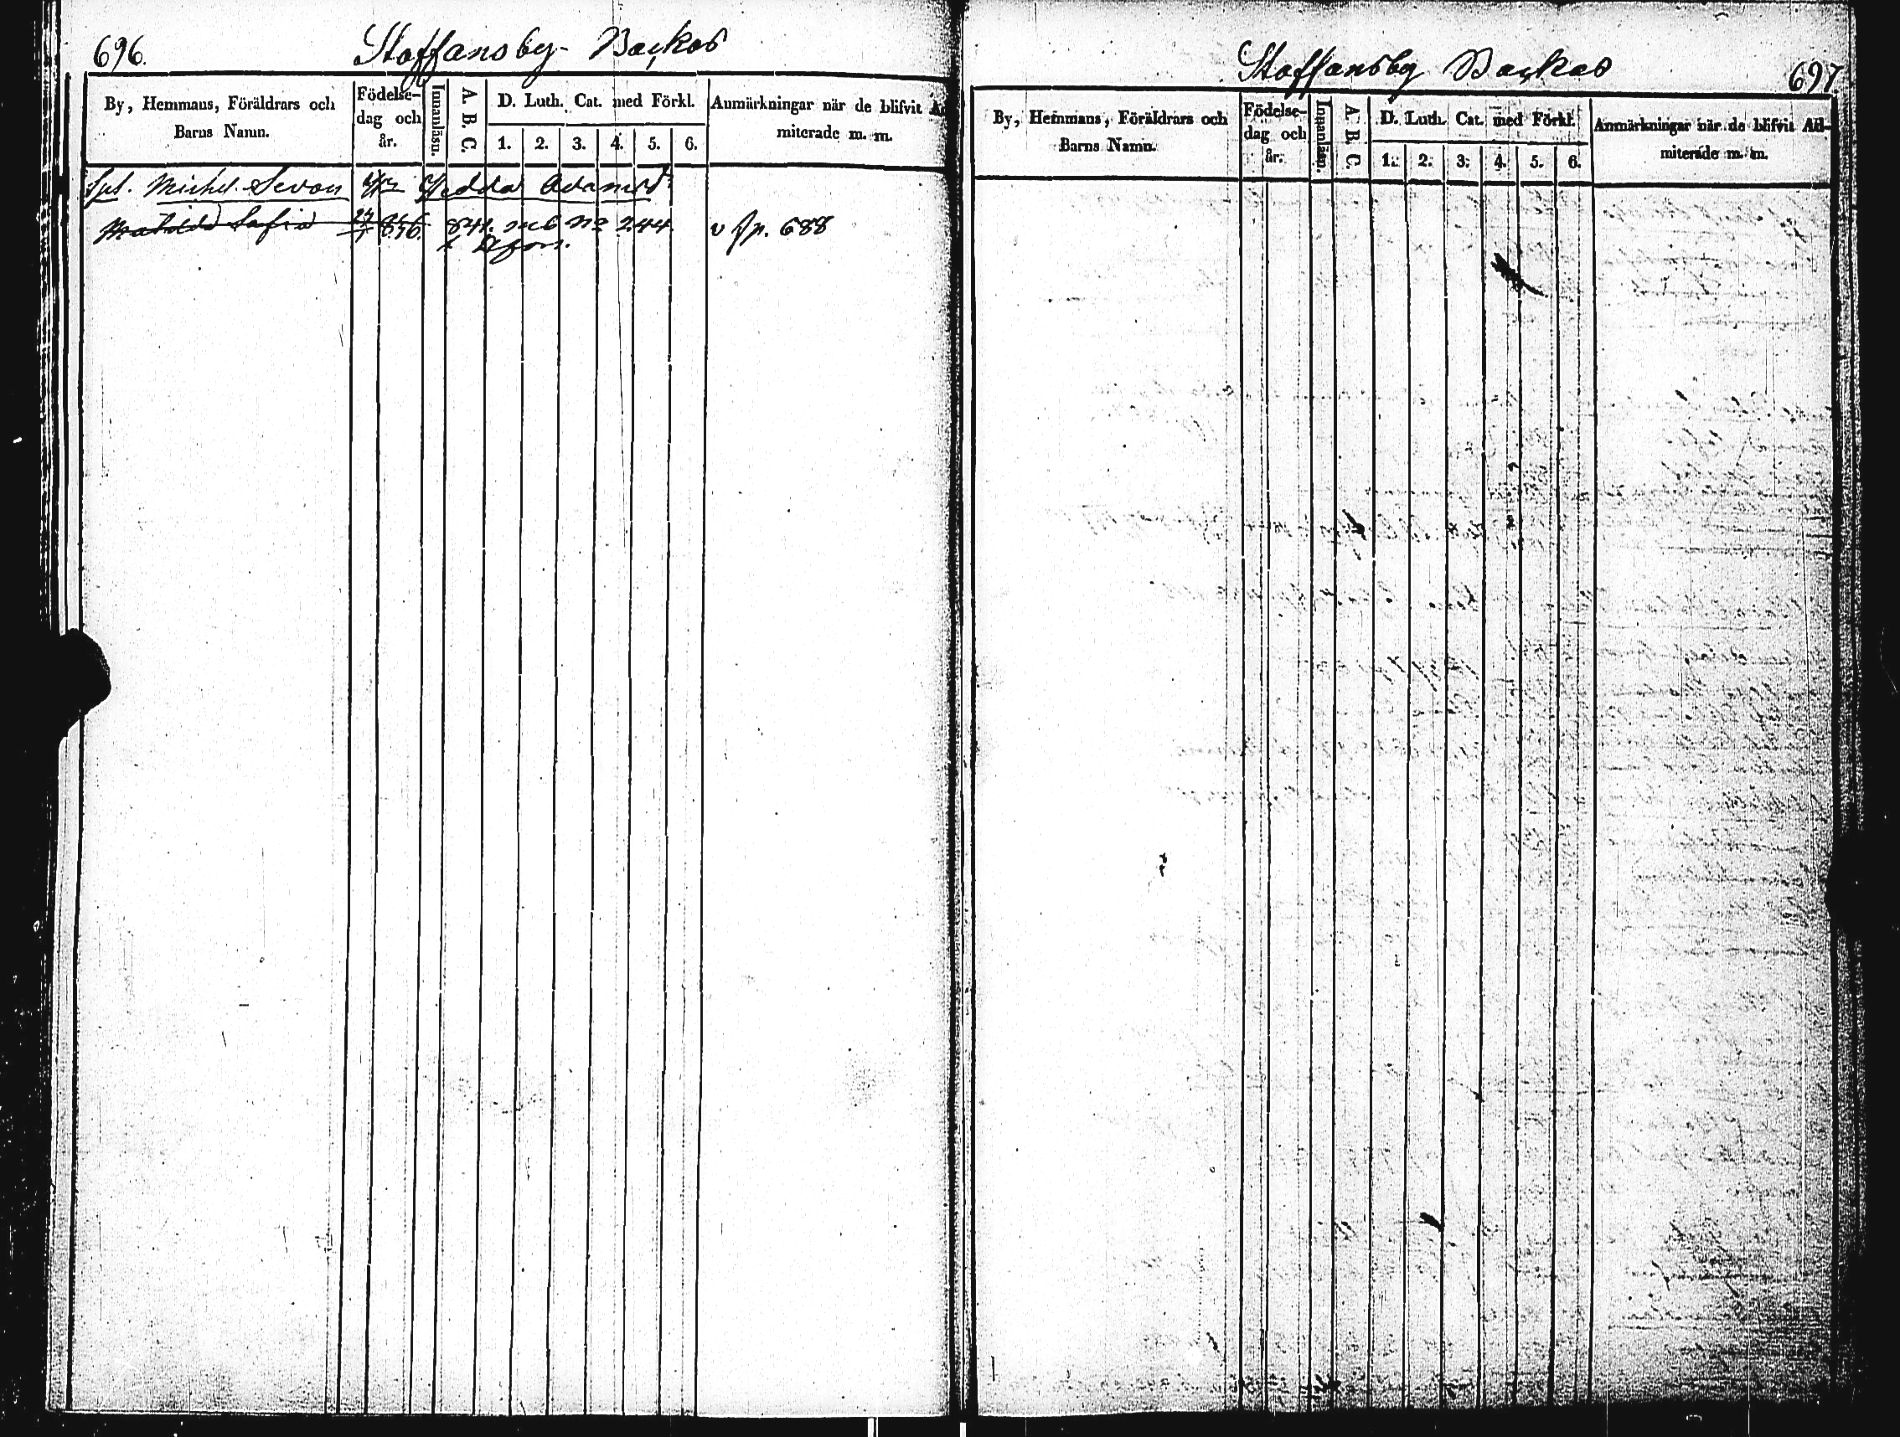 696.
Staffansby Backas
By, Hemmans, Föräldrars och
Barns Namn.
Födelse-
dag och
år.
Innanläsn.
A. B. C.
D. Luth. Cat. med Förkl.
1. 2. 3. 4. 5. 6.
Anmärkningar när de blifvit Ad
miterade m. m.
Michel Sevon Hedda Adamsd
Mathilda Sofia 24 841. No 244 v p. 688
Staffansby Backas
697
By, Hemmans, Föräldrars och
Barns Namn.
Födelse-
dag och
år.
Innanläsn.
A. B. C.
D. Luth. Cat. med Förkl.
1. 2. 3. 4. 5. 6.
Anmärkningar när de blifvit Ad-
miterade m. m.